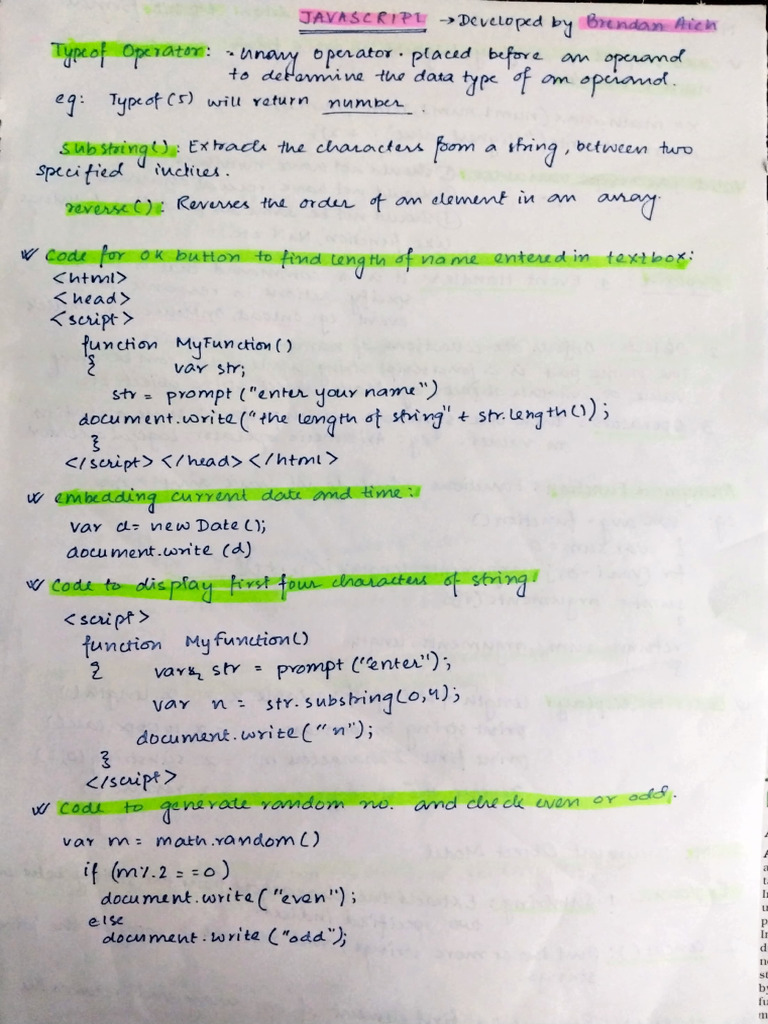 JAVASCRIPT → Developed by Brendan Aich
Typeof Operator: - unary operator. placed before an operand
to determine the data type of an operand.
eg: Typeof(5) will return number.
substring(): Extracts the characters from a string, between two
specified indices.
reverse(): Reverses the order of an element in an array.
Code for OK button to find length of name entered in textbox:
<html>
<head>
<script>
function MyFunction()
{ var str;
str = prompt ("enter your name")
document.write("the length of string" + str.length());
}
</script> </head> </html>
embedding current date and time:
var d = new Date();
document.write (d)
Code to display first four characters of string:
<script>
function MyFunction()
{ var str = prompt ("enter");
var n = str.substring(0,4);
document.write("n");
}
</script>
Code to generate random no. and check even or odd.
var m = math.random()
if (m%2 = = 0)
document.write("even");
else
document.write ("odd");